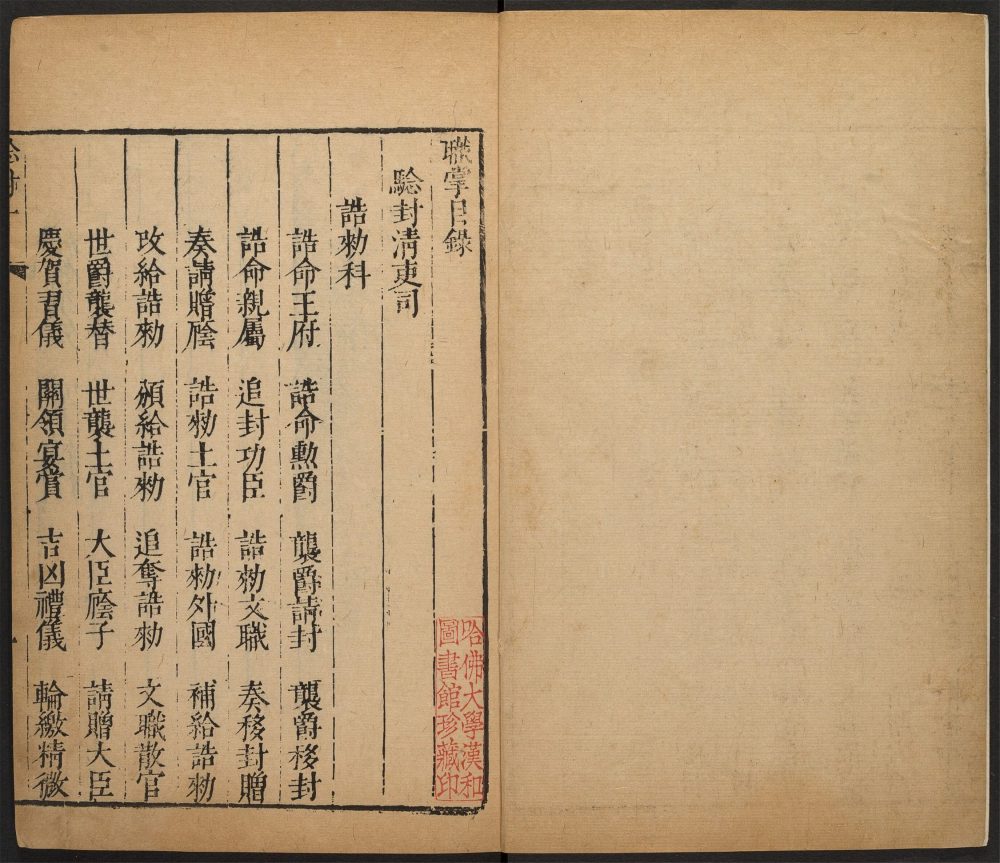 職掌目錄
驗封清吏司
誥勑科
誥命王府 誥命勲爵 襲爵請封 襲爵移封
誥命親屬 追封功臣 誥勑文職 奏移封贈
奏請贈廕 誥勑土官 誥勑外國 補給誥勑
攺給誥勑 頒給誥勑 追奪誥勑 文職散官
世爵襲替 世襲土官 大臣廕子 請贈大臣
慶賀習儀 關領宴賞 吉凶禮儀 輪繳精微
哈佛大學漢和
圖書館珍藏印